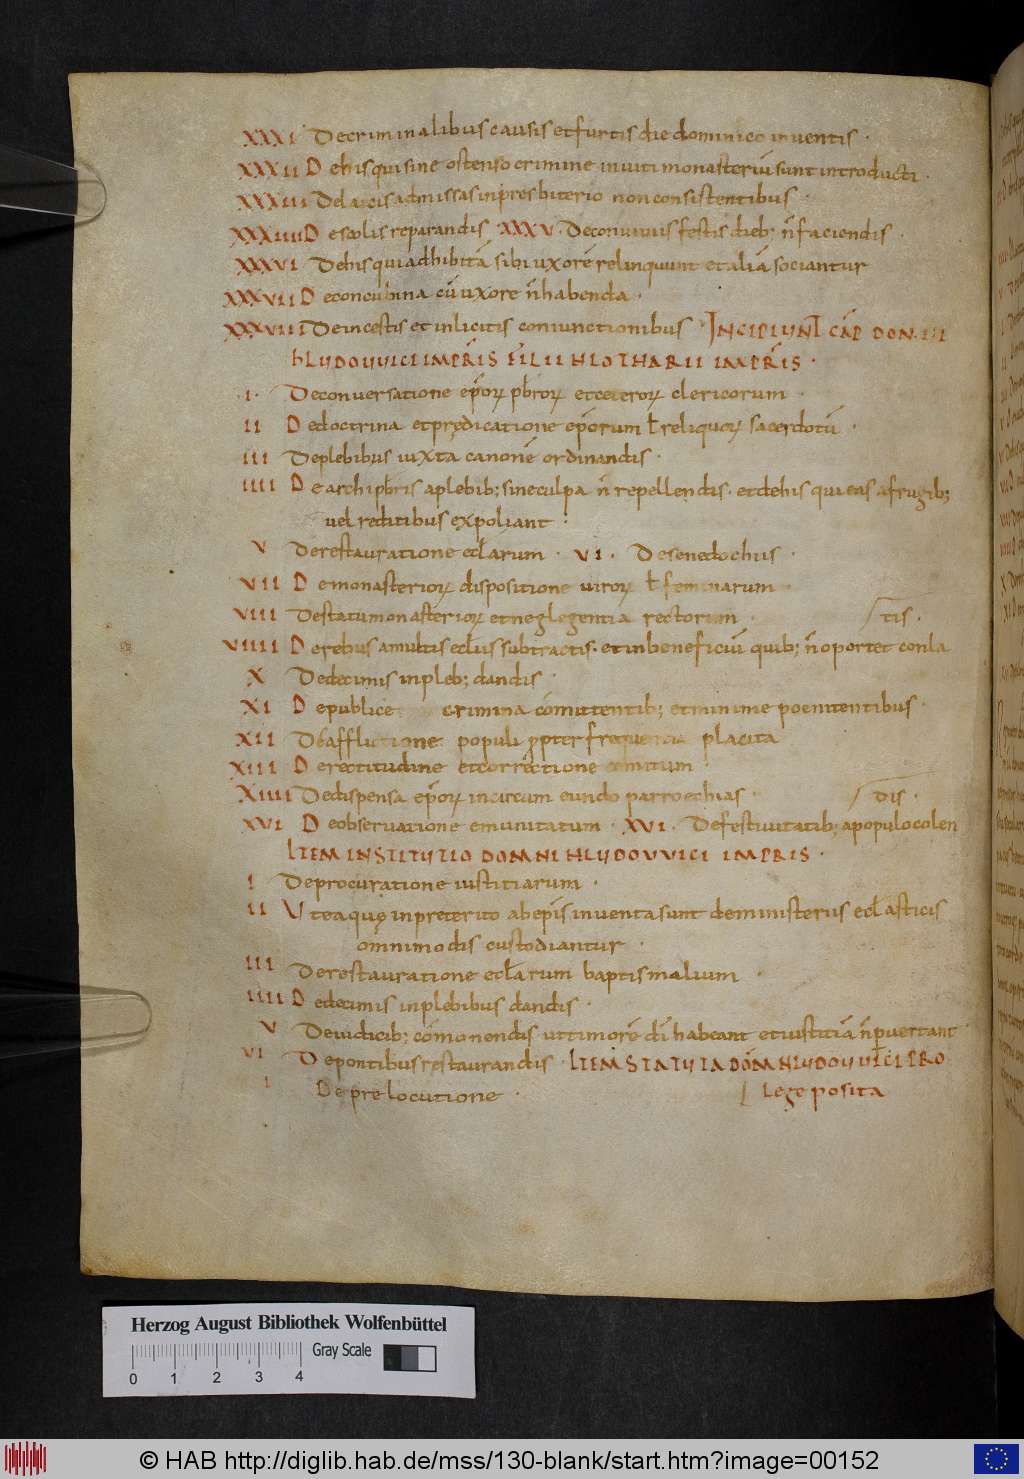 XXXI De criminalibus causis et furtis die dominico inventis ·
XXXII De his qui sine ostenso crimine inviti monasterium sunt introducti ·
XXXIII De laicis admissas in presbiterio non consistentibus ·
XXXIIII De scolis reparandis XXXV · De conviviis festis dieb; n̄ faciendis ·
XXXVI De his qui adhibitā sibi uxorē relinquunt et aliā sociantur
XXXVII De concubina cū uxore n̄ habenda ·
XXXVIII De incestis et inlicitis coniunctionibus INCIPIUNT CAP̄ DOM̄NI
HLUDOUUICI IMPR̄IS FILII HLOTHARII IMPR̄IS ·
· I · De conversatione ep̄orꝝ pb̄rorꝝ et ceterorꝝ clericorum ·
II De doctrina et predicatione ep̄orum ł reliquorꝝ sacerdotū ·
III De plebibus iuxta canonē ordinandis ·
IIII De archipb̄ris a plebib; sine culpa n̄ repellendis · et de his qui eas a frugib;
vel reditibus expoliant ·
V De restauratione eccl̄arum · VI · De senedochiis ·
VII De monasteriorꝝ dispositione virorꝝ ł feminarum
VIII De statu monasteriorꝝ et neglegentia rectorum · tis ·
VIIII De rebus a multis ecl̄iis subtractis · et in beneficiū quib; n̄ oportet conla
X De decimis in pleb; dandis ·
XI De publice crimina cōmittentib; et minime poenitentibus ·
XII De afflictione populi propter frequencia placita
XIII De rectitudine et correctione comitum ·
XIIII De dispensa ep̄orꝝ in circumeundo parroechias · dis ·
XVI De observatione emunitatum · XVI · De festivitatib; a populo colen
ITEM INSTITUTIO DOMNI HLUDOUVICI IMPRIS ·
I De procuratione iustitiarum ·
II Ut ea quę in preterito ab ep̄is inventa sunt de ministeriis ecl̄asticis
omnimodis custodiantur ·
III De restauratione eccl̄arum baptismalium ·
IIII De decimis in plebibus dandis ·
V De iudicib; cōmonendis ut timorē dī habeant et iustitiā n̄ pvertant
VI De pontibus restaurandis · ITEM STATUTA DOM̄ HLUDOUUICI PRO
I De prelocutione · lege posita
Herzog August Bibliothek Wolfenbüttel
Gray Scale
0 1 2 3 4
© HAB http://diglib.hab.de/mss/130-blank/start.htm?image=00152